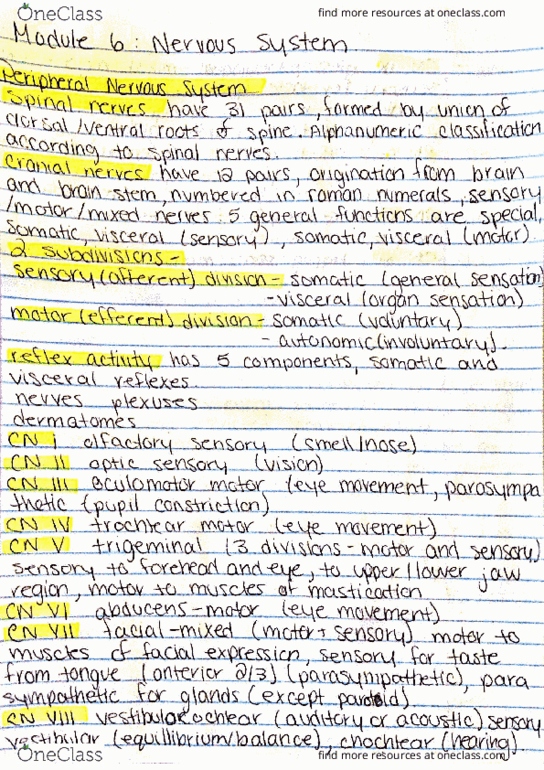 OneClass
find more resources at oneclass.com
Module 6: Nervous System
Peripheral Nervous System
Spinal nerves have 31 pairs, formed by union of
dorsal/ventral roots of spine. Alphanumeric classification
according to spinal nerves.
Cranial nerves have 12 pairs, origination from brain
and brain stem, numbered in roman numerals, sensory
/motor/mixed nerves. 5 general functions are special,
somatic, visceral (sensory), somatic, visceral (motor).
2 subdivisions -
sensory (afferent) division - somatic (general sensation)
- visceral (organ sensation)
motor (efferent) division - somatic (voluntary)
- autonomic (involuntary).
reflex activity has 5 components, somatic and
visceral reflexes.
nerves plexuses
dermatomes
CN I olfactory sensory (smell/nose)
CN II optic sensory (vision)
CN III oculomotor motor (eye movement, parasympa
thetic (pupil constriction)
CN IV trochlear motor (eye movement)
CN V trigeminal (3 divisions - motor and sensory)
sensory to forehead and eye, to upper/lower jaw
region, motor to muscles of mastication
CN VI abducens - motor (eye movement)
CN VII facial - mixed (motor + sensory) motor to
muscles of facial expression, sensory for taste
from tongue (anterior 2/3) (parasympathetic), para
sympathetic for glands (except parotid)
CN VIII vestibulocochlear (auditory or acoustic) sensory
vestibular (equillibrium/balance), chochlear (hearing)
OneClass
find more resources at oneclass.com